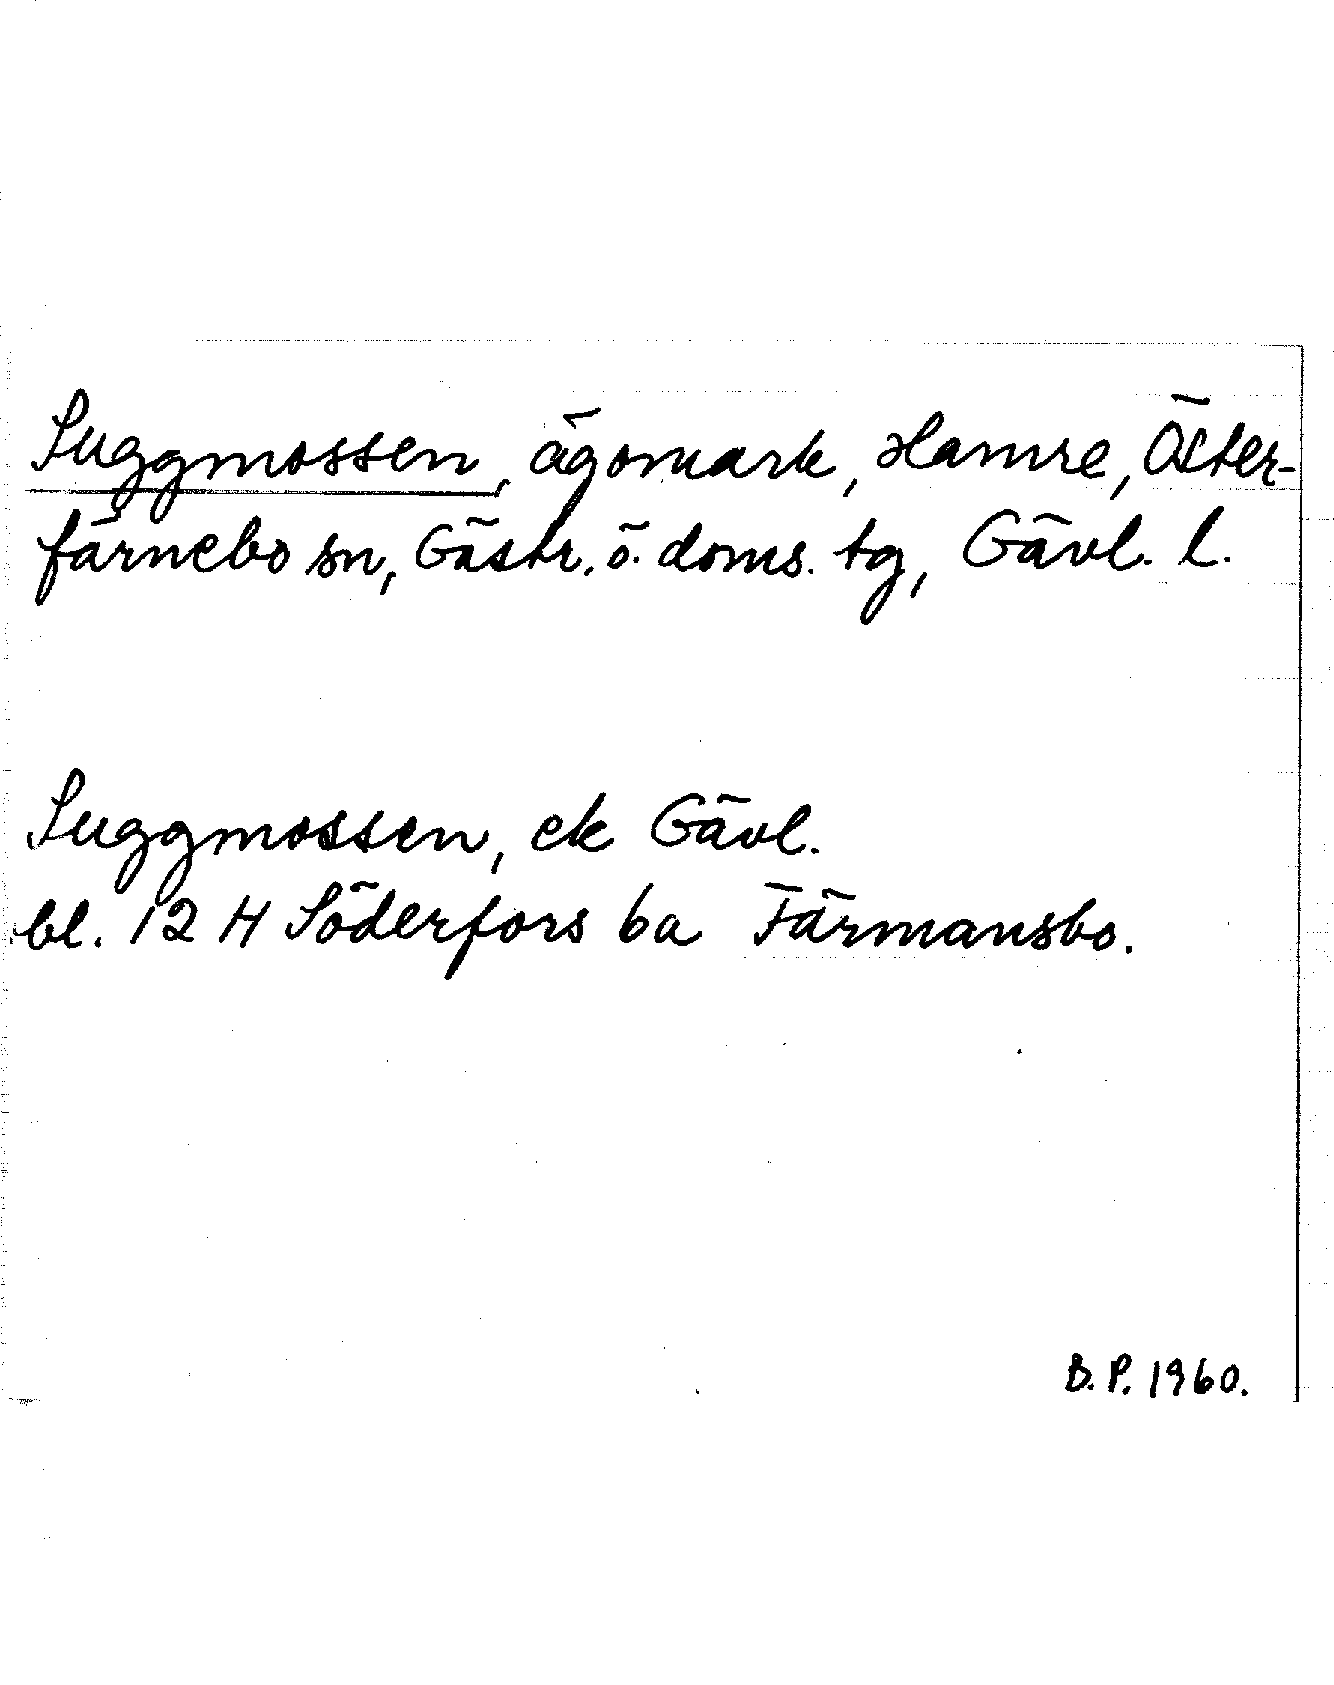 Suggmossen, ägomark, Hamre, Öster-
färnebo sn, Gästr. ö. doms. tg, Gävl. l.
Suggmossen, ek Gävl.
bl. 12 H Söderfors 6a Färmansbo.
B. P. 1960.